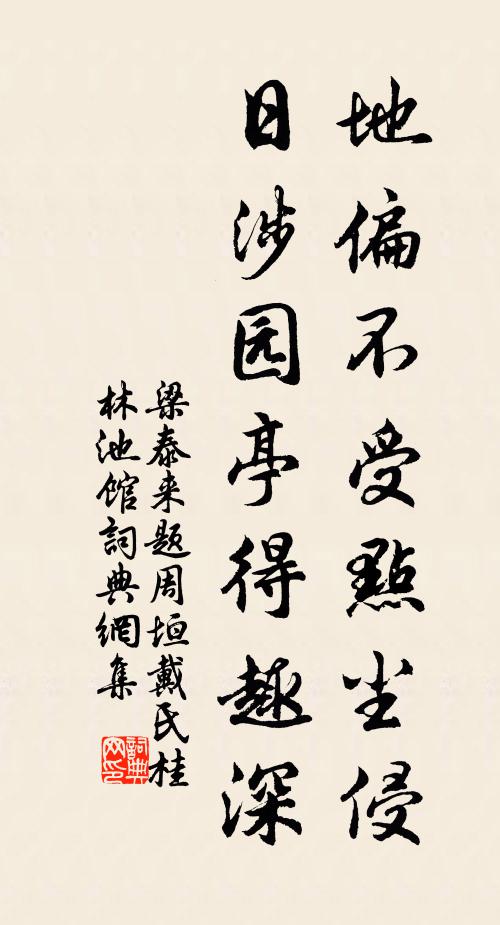 地偏不受點尘侵
日涉园亭得趣深
梁泰来题周垣戴氏桂
林池馆詞典網集
詞典
网印